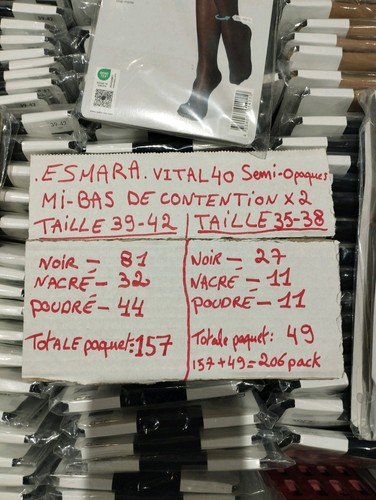 .ESMARA. VITAL 40 Semi-Opaques
MI-BAS DE CONTENTION X 2
TAILLE 39-42
NOIR — 81
NACRÉ — 32
POUDRÉ — 44
TOTALE paquet: 157
TAILLE 35-38
NOIR — 27
NACRÉ — 11
POUDRE — 11
Totale paquet: 49
157 + 49 = 206 pack